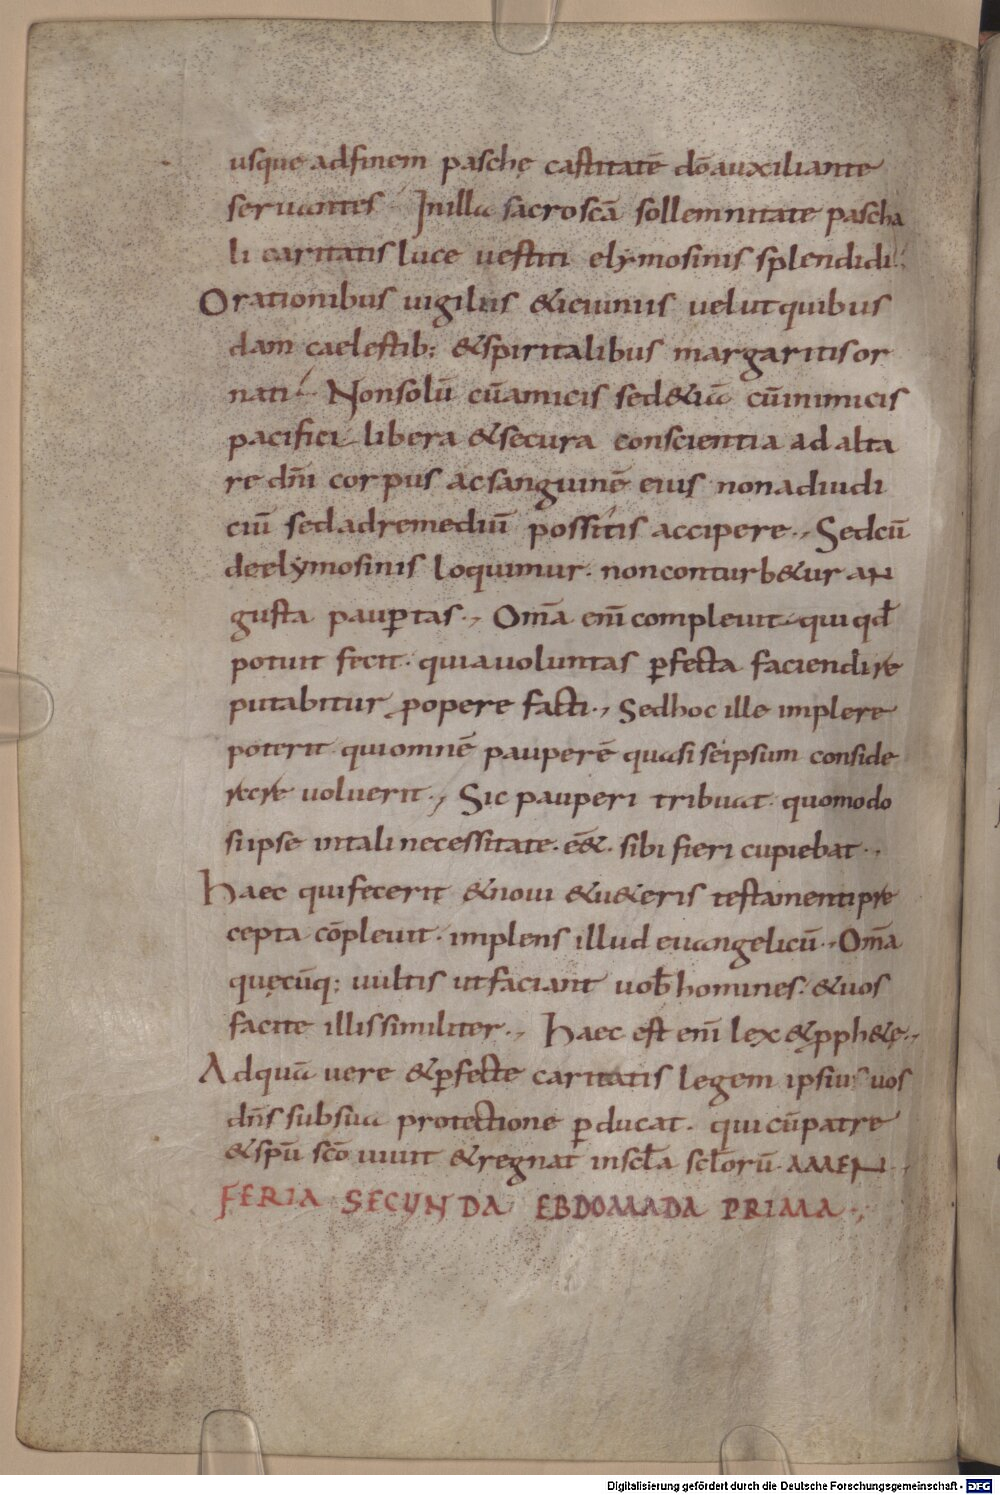 usque adfinem paschę castitatē dō auxiliante
seruantes Inilla sacroscā sollemnitate pascha
li caritatis luce uestiti elymosinis splendidi
Orationibus uigiliis &ieiuniis uelut quibus
dam caelestib; &spiritalibus margaritis or
nati Nonsolū cū amicis sed&iā cū inimicis
pacifici libera &secura conscientia ad alta
re dn̄i corpus acsanguinē eius nonadiudi
ciū sedadremediū possitis accipere. Sedcū
deelymosinis loquimur. nonconturb&ur AN
gusta paup̱tas. Om̄a enī compleuit qui qd̄
potuit fecit. quiauoluntas ꝑfecta faciendi re
putabitur ꝓopere facti. Sedhoc ille implere
poterit quiomnē pauperē quasi seipsum conside
rare uoluerit. Sic pauperi tribuat quomodo
siipse intali necessitate. eē&. sibi fieri cupiebat.
Haec quifecerit &noui &u&eris testamenti pre
cepta cōpleuit. implens illud euangelicū. Om̄a
quęcūq; uultis utfaciant uob̄ homines. &uos
facite illis similiter. Haec est enī lex &ꝓph&ę.
Adquā uere &ꝑfecte caritatis legem ipsius uos
dn̄s subsua protectione ꝑducat. qui cūpatre
&spū scō uiuit &regnat inscl̄a scl̄orū AMEN
FERIA SECUNDA EBDOMADA PRIMA.
Digitalisierung gefördert durch die Deutsche Forschungsgemeinschaft - DFG